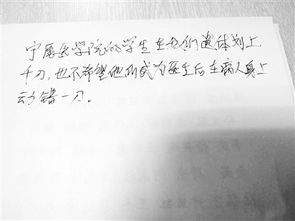 宁愿医学院的学生在我们遗体划上
千刀，也不希望他们成为医生后在病人身上
动错一刀。